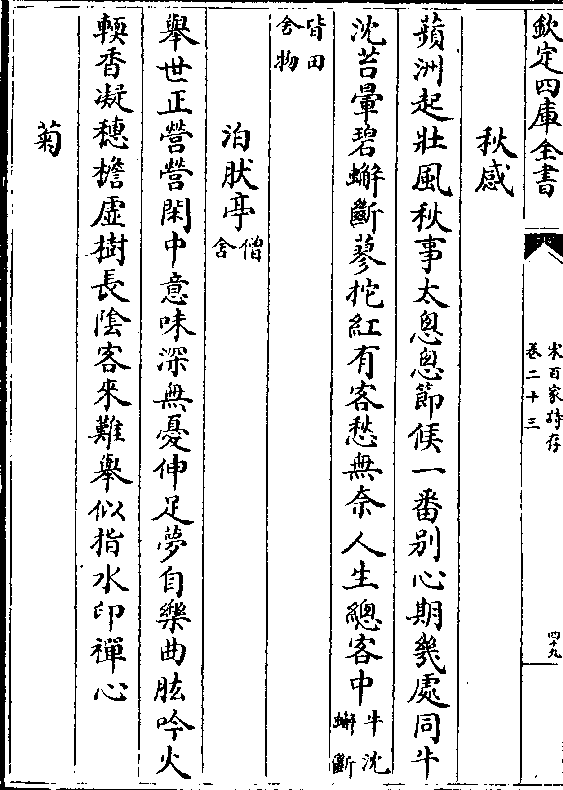 欽定四庫全書
宋百家詩存
卷二十三
四十九
秋感
蘋洲起壯風秋事太怱怱節候一番别心期幾處同牛
沈苔暈碧蠏斷蓼拕紅有客愁無奈人生總客中牛沈蠏斷
皆田舍物
泊肰亭僧舍
舉世正營營閑中意味深無憂伸足夢自樂曲肱吟火
輭香凝穗檐虚樹長陰客來難舉似指水印禪心
菊